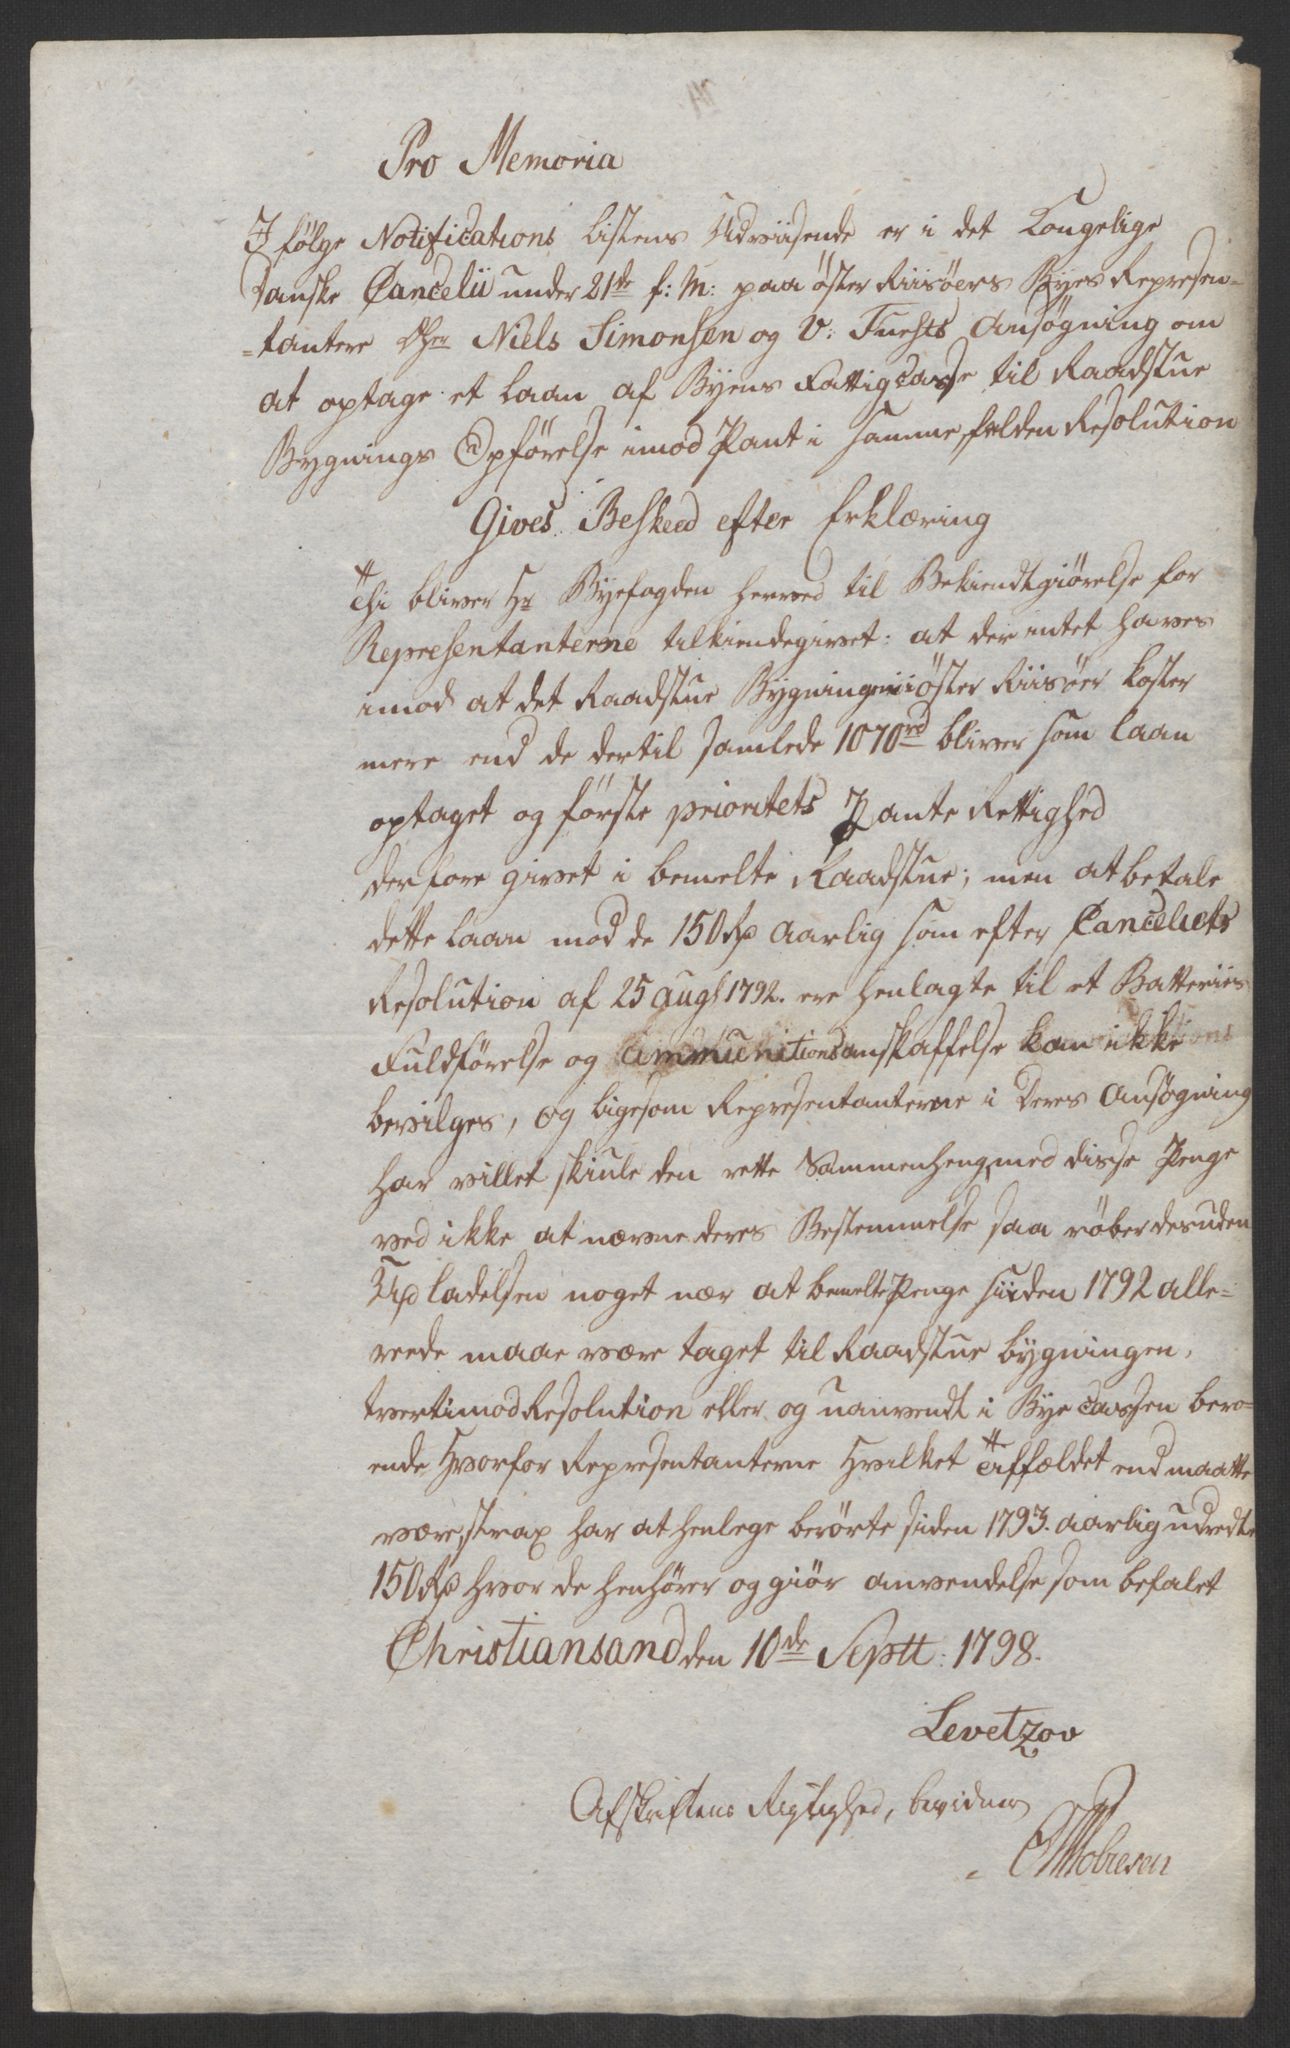 Pro Memoria
I følge Notifications Listens Udviisende er i det Kongelige
Danske Cancelii under 21de f: M: paa Öster Riisöers Byes Represen-
-tantere Niels Simonsen og V: Fuchts Ansøgning om
at optage et Laan af Byens Fattigcasse til Raadstue
Bygnings Opførelse imod Pant i samme, falden Resolution
Gives Beskeed efter Erklæring
Thi bliver Hr Byefogden herved til Bekiendtgiørelse for
Representanterne tilkiendegivet: at der intet haves
imod at det Raadstue Bygningen i Öster Riisöer koster
mere end de dertil samlede 1070rd bliver som Laan
optaget og første prioritets Pante Rettighed
derfore givet i bemelte Raadstue; men at betale
dette Laan med de 150 Rd aarlig som efter Canceliets
Resolution af 25 Augs 1792. ere henlagte til et Batteries
Fuldførelse og Ammunitions anskaffelse kan ikke
bevilges, og ligesom Representanterne i Deres Ansøgning
har villet skiule den rette Sammenheng med disse Penge
ved ikke at nævne deres Bestemmelse saa røber desuden
Udladelsen noget nær at bemelte Penge siden 1792 alle-
reede maae være taget til Raadstue bygningen,
tvertimod Resolution eller og uanvendt i Bye Cassen bero-
ende Hvorfor Representanterne Hvilket Affældet end maatte
være, strax har at henlege berørte siden 1793. aarlig udredte
150 Rd hvor de henhører og giør anvendelse som befalet
Christiansand den 10de Septt: 1798.
Levetzov
Afskriftens Rigtighed, bevidner
Tobiesen